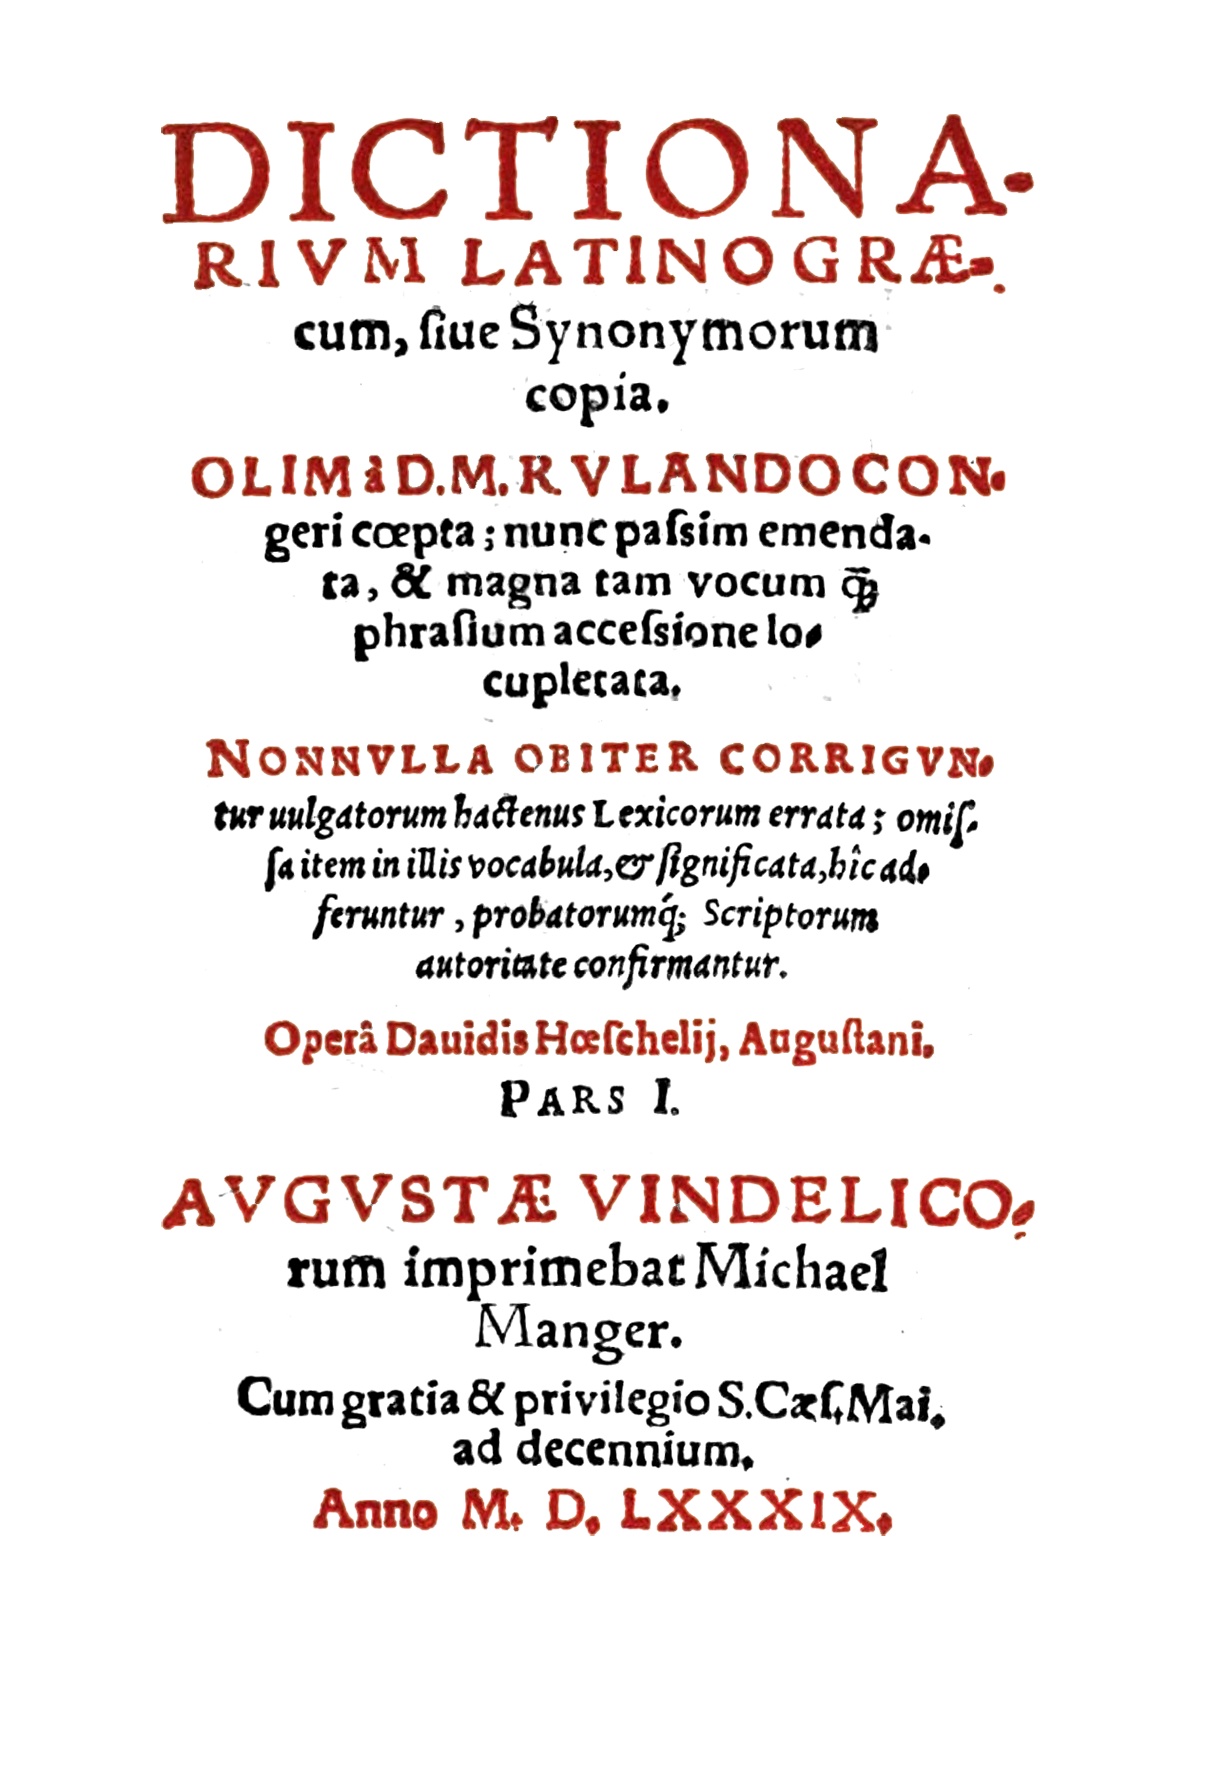 DICTIONA-
RIVM LATINOGRÆ-
cum, ſiue Synonymorum
copia.
OLIM à D. M. RVLANDO CON-
geri cœpta; nunc paſsim emenda-
ta, & magna tam vocum ꝗ̃
phraſium acceſsione lo-
cupletata.
NONNVLLA OBITER CORRIGVN-
tur uulgatorum hactenus Lexicorum errata; omiſ-
ſa item in illis vocabula, & ſignificata, hîc ad-
feruntur, probatorumq́; Scriptorum
autoritate confirmantur.
Operâ Dauidis Hœſchelij, Auguſtani.
PARS I.
AVGVSTÆ VINDELICO-
rum imprimebat Michael
Manger.
Cum gratia & privilegio S. Cæſ. Mai.
ad decennium.
Anno M. D. LXXXIX.